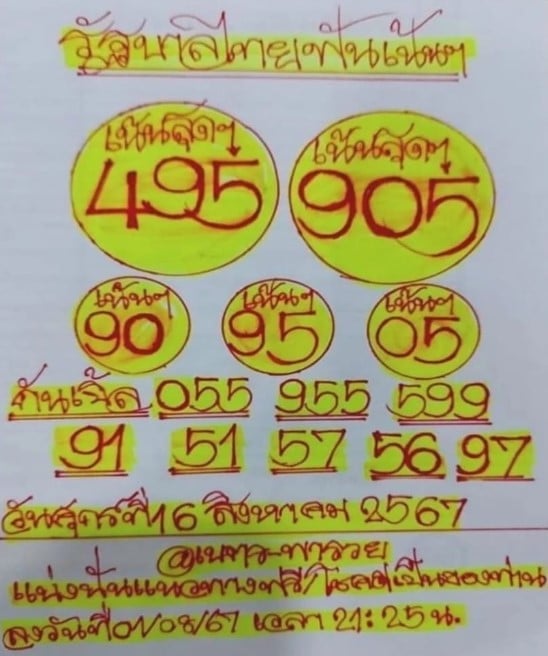 รัฐบาลไทยฟันเน้นๆ
เน้นสุดๆ เน้นสุดๆ
495 905
เน้นๆ เน้นๆ เน้นๆ
90 95 05
กันเบิ้ล 055 955 599
91 51 57 56 97
วันศุกร์ที่16 สิงหาคม 2567
@เนทร-พารวย
แบ่งปันแนวทางฟรี/โชคดีเป็นของท่าน
ลงวันที่ 01/08/67 เวลา 21:25 น.